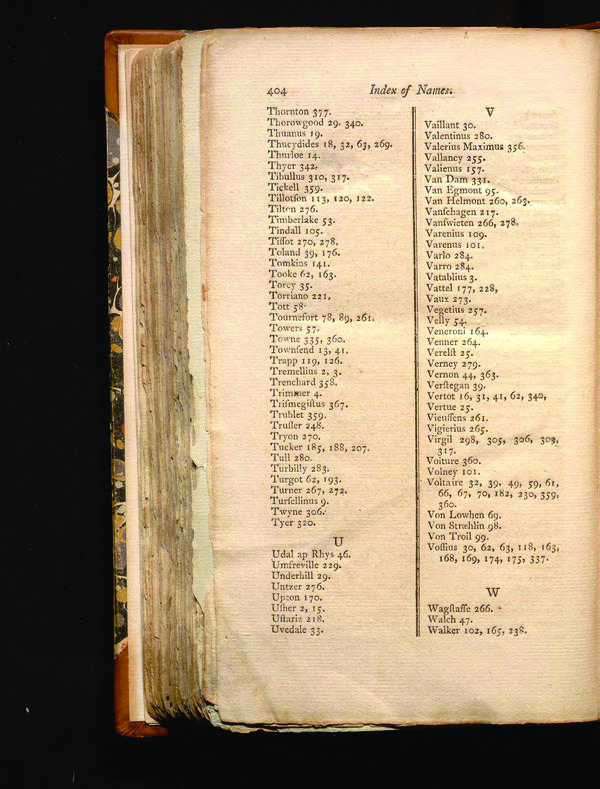 404
Index of Names.
Thornton 377.
Thorowgood 29. 340.
Thuanus 19.
Thucydides 18, 32, 63, 269.
Thurloe 14.
Thyer 342.
Tibullus 310, 317.
Tickell 359.
Tillotſon 113, 120, 122.
Tilton 276.
Timberlake 53.
Tindall 105.
Tiſſot 270, 278.
Toland 39, 176.
Tomkins 141.
Tooke 62, 163.
Torcy 35.
Torriano 221.
Tott 58.
Tournefort 78, 89, 261.
Towers 57.
Towne 335, 360.
Townſend 13, 41.
Trapp 119, 126.
Tremellius 2, 3.
Trenchard 358.
Trimmer 4.
Triſmegiſtus 367.
Trublet 359.
Truſler 248.
Tryon 270.
Tucker 185, 188, 207.
Tull 280.
Turbilly 283.
Turgot 62, 193.
Turner 267, 272.
Turſellinus 9.
Twyne 306.
Tyer 320.
U
Udal ap Rhys 46.
Umfreville 229.
Underhill 29.
Untzer 276.
Upton 170.
Uſher 2, 15.
Uſtariz 218.
Uvedale 33.
V
Vaillant 30.
Valentinus 280.
Valerius Maximus 356.
Vallancy 255.
Valienus 157.
Van Dam 331.
Van Egmont 95.
Van Helmont 260, 263.
Vanſchagen 217.
Vanſwieten 266, 278.
Varenius 109.
Varenus 101.
Varlo 284.
Varro 284.
Vatablius 3.
Vattel 177, 228,
Vaux 273.
Vegetius 257.
Velly 54.
Veneroni 164.
Venner 264.
Verelſt 25.
Verney 279.
Vernon 44, 363.
Verſtegan 39.
Vertot 16, 31, 41, 62, 340,
Vertue 25.
Vieuſſens 261.
Vigierius 265.
Virgil 298, 305, 306, 309,
317.
Voiture 360.
Volney 101.
Voltaire 32, 39, 49, 59, 61,
66, 67, 70, 182, 230, 359,
360.
Von Lowhen 69.
Von Stræhlin 98.
Von Troll 99.
Voſſius 30, 62, 63, 118, 163,
168, 169, 174, 175, 337.
W
Wagſtaffe 266.
Walch 47.
Walker 102, 165, 238.